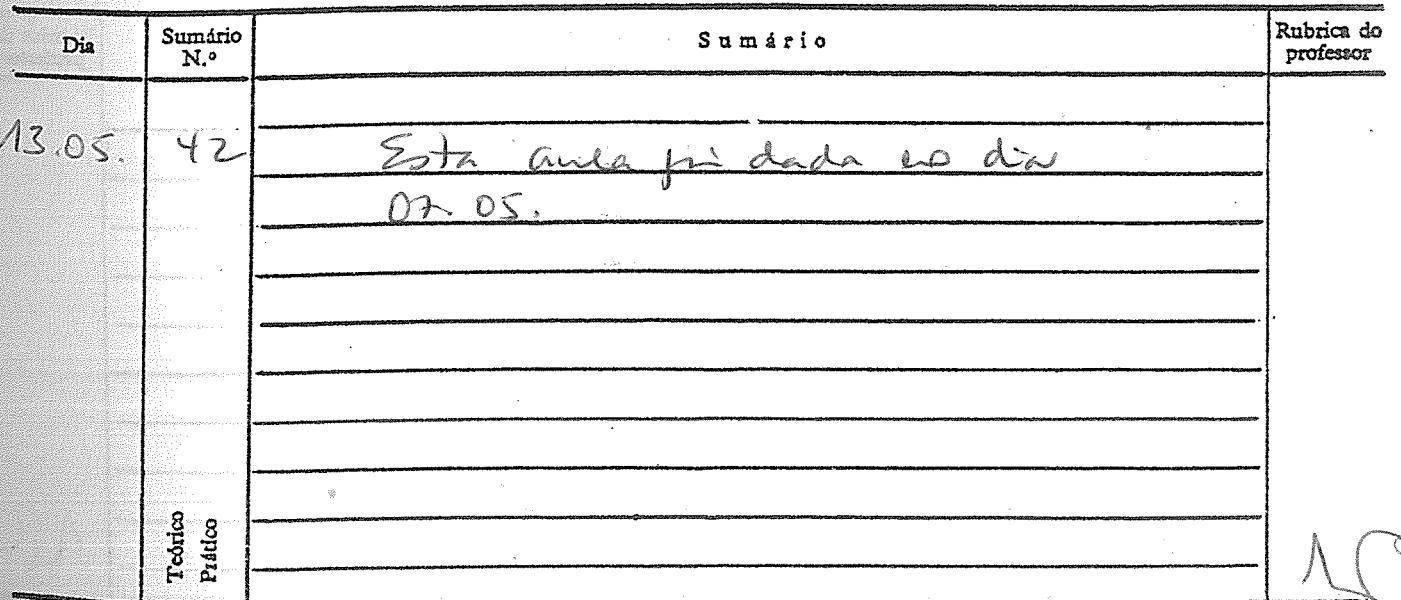 Dia
Sumário N.º
Sumário
Rubrica do professor
13.05. 42 Esta aula foi dada no dia
07.05.
Teórico
Prático